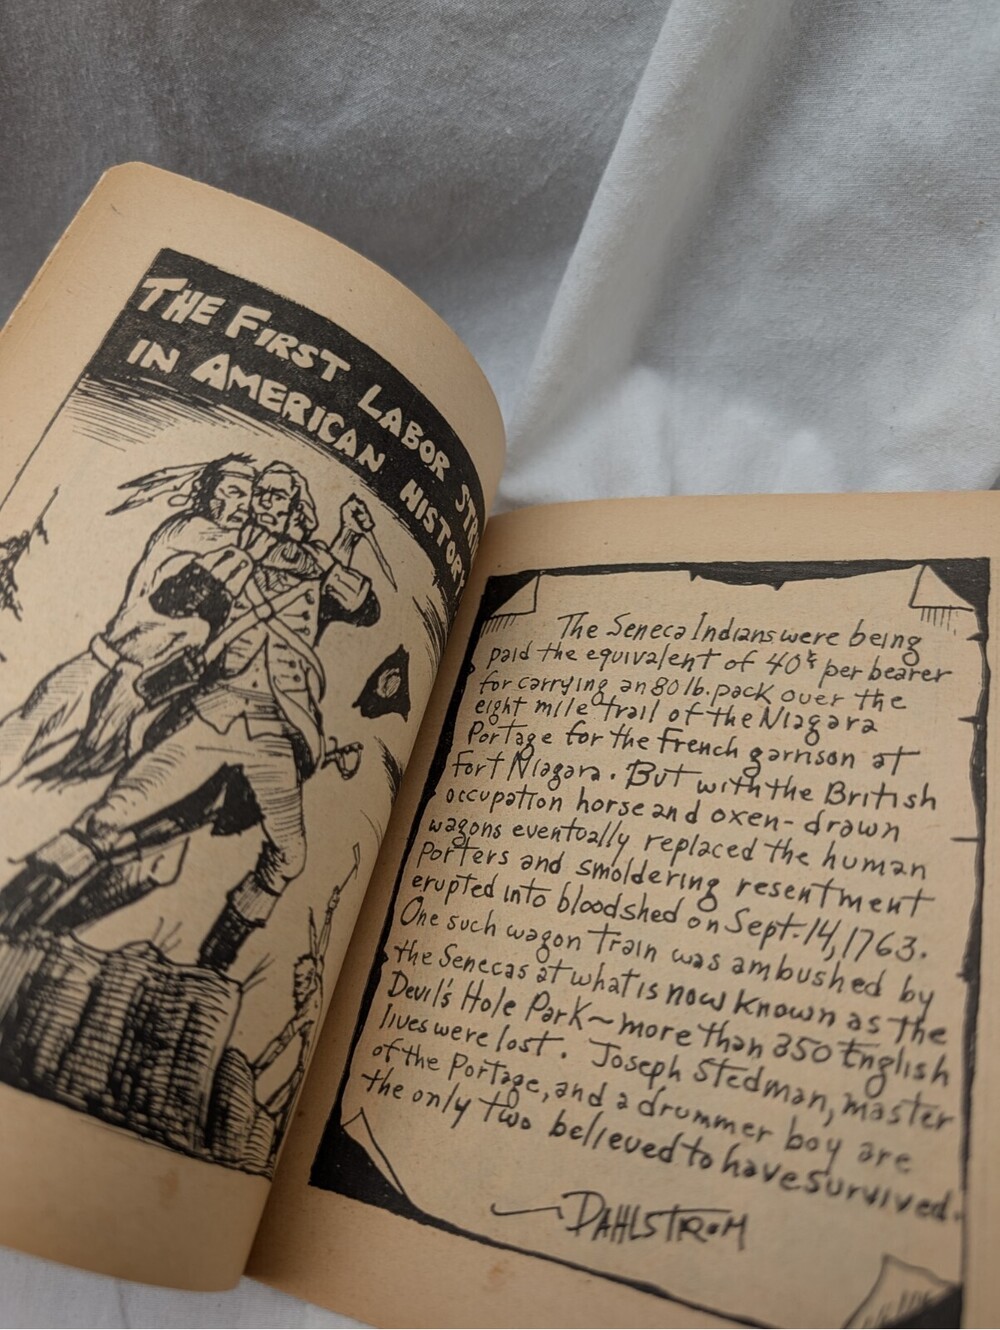 THE FIRST LABOR
IN AMERICAN
The Seneca Indians were being
paid the equivalent of 40¢ per bearer
for carrying an 80 lb. pack over the
eight mile trail of the Niagara
Portage for the French garrison at
Fort Niagara. But with the British
occupation horse and oxen-drawn
wagons eventually replaced the human
porters and smoldering resentment
erupted into bloodshed on Sept. 14, 1763.
One such wagon train was ambushed by
the Senecas at what is now known as the
Devil's Hole Park~more than 350 English
lives were lost. Joseph Stedman, master
of the Portage, and a drummer boy are
the only two believed to have survived.
DAHLSTROM